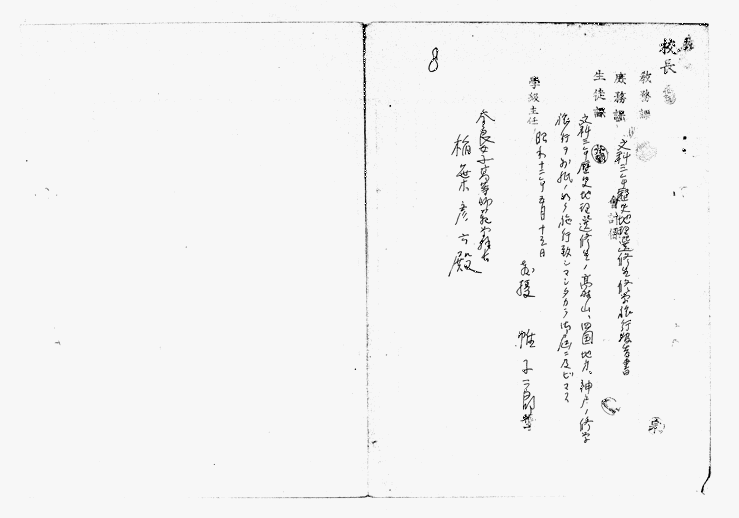 校長
教務課
庶務課
生徒課
会計係
文科三年歴史地理選修生修学旅行報告書
文科三年歴史地理選修生ノ高野山、四国地方、神戸ノ修学
旅行ヲ別紙ノ如ク施行致シマシタカラ御届ニ及ビマス
学級主任
昭和十二年五月十五日
教授
奈良女子高等師範学校長
殿
8